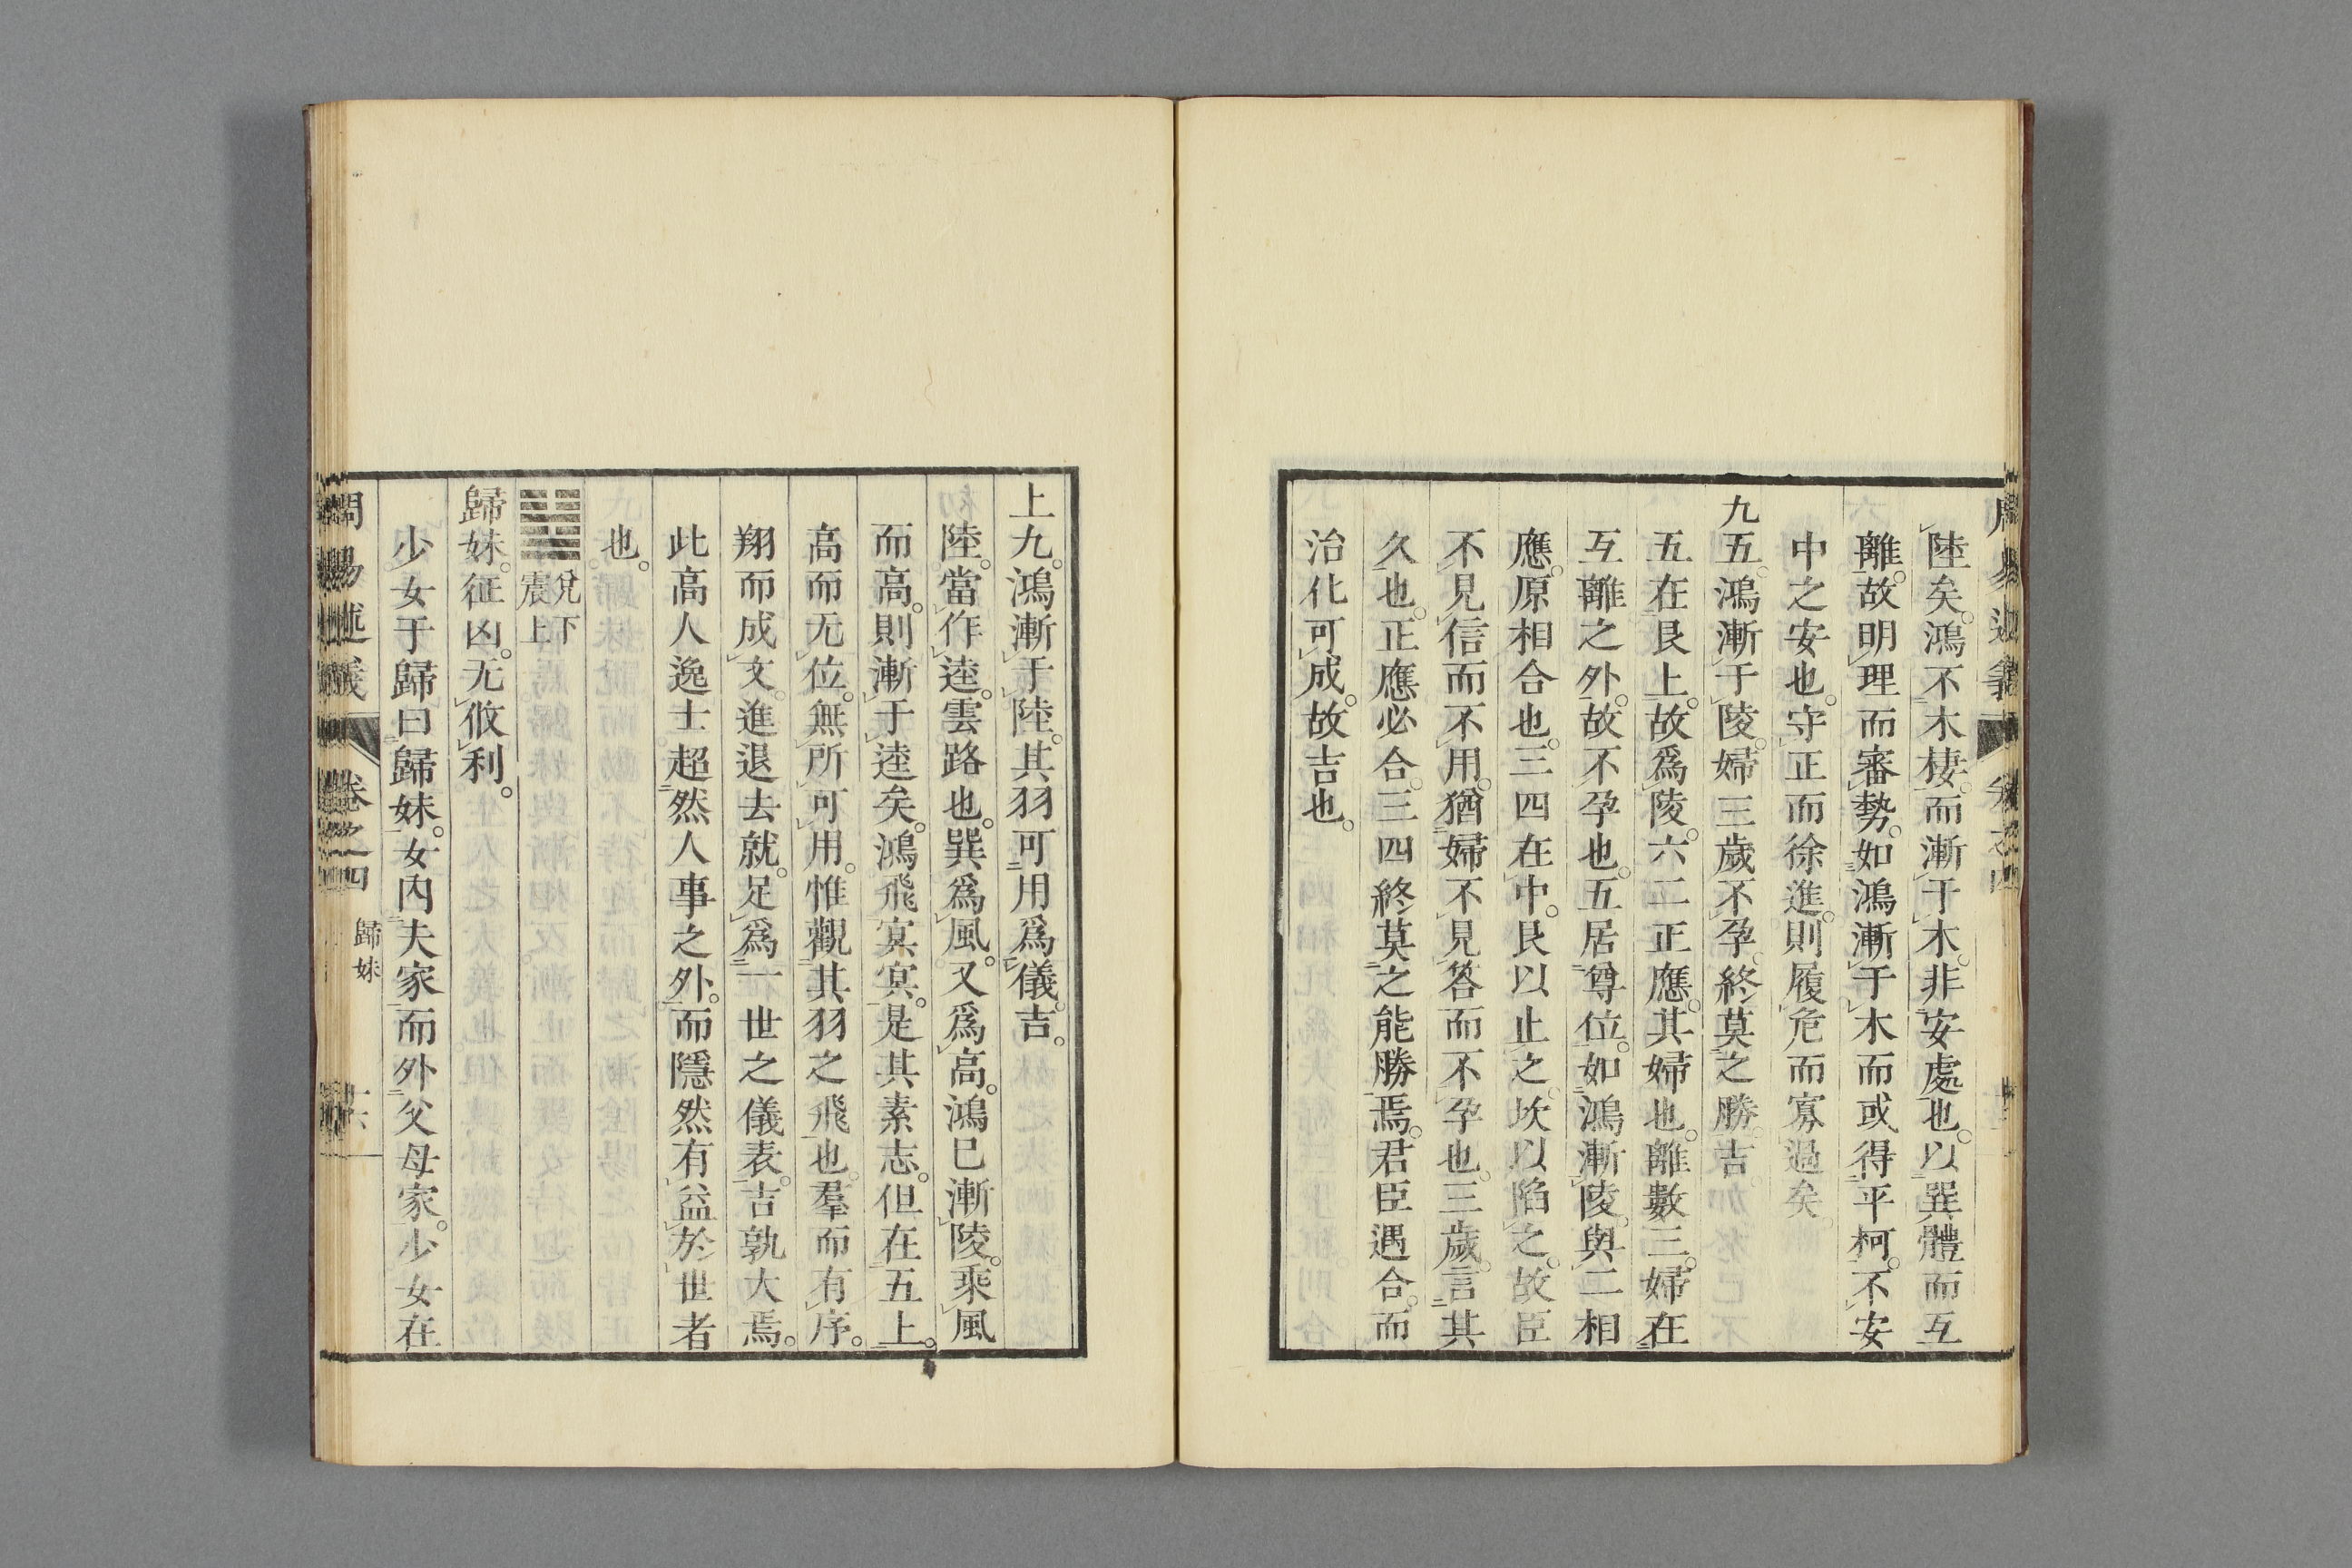 陸矣。鴻不木棲。而漸于木。非安處也。以巽體而互
離。故明理而審勢。如鴻漸于木而或得平柯。不安
中之安也。守正而徐進。則履危而寡過矣。
九五。鴻漸于陵。婦三歲不孕。終莫之勝。吉。
五在艮上。故爲陵。六二正應。其婦也。離數三。婦在
互離之外。故不孕也。五居尊位。如鴻漸陵。與二相
應。原相合也。三四在中。艮以止之。坎以陷之。故臣
不見信而不用。猶婦不見答而不孕也。三歲。言其
久也。正應必合。三四終莫之能勝焉。君臣遇合。而
治化可成。故吉也。
上九。鴻漸于陸。其羽可用爲儀。吉。
陸。當作逵。雲路也。巽爲風。又爲高。鴻巳漸陵。乘風
而高。則漸于逵矣。鴻飛冥冥。是其素志。但在五上。
高而无位。無所可用。惟觀其羽之飛也。羣而有序。
翔而成文。進退去就。足爲一世之儀表。吉孰大焉。
此高人逸士超然人事之外。而隱然有益於世者
也。
兌下
震上
歸妹。征凶。无攸利。
少女于歸曰歸妹。女內夫家而外父母家。少女在
周易述義 卷之四 歸妹 十六